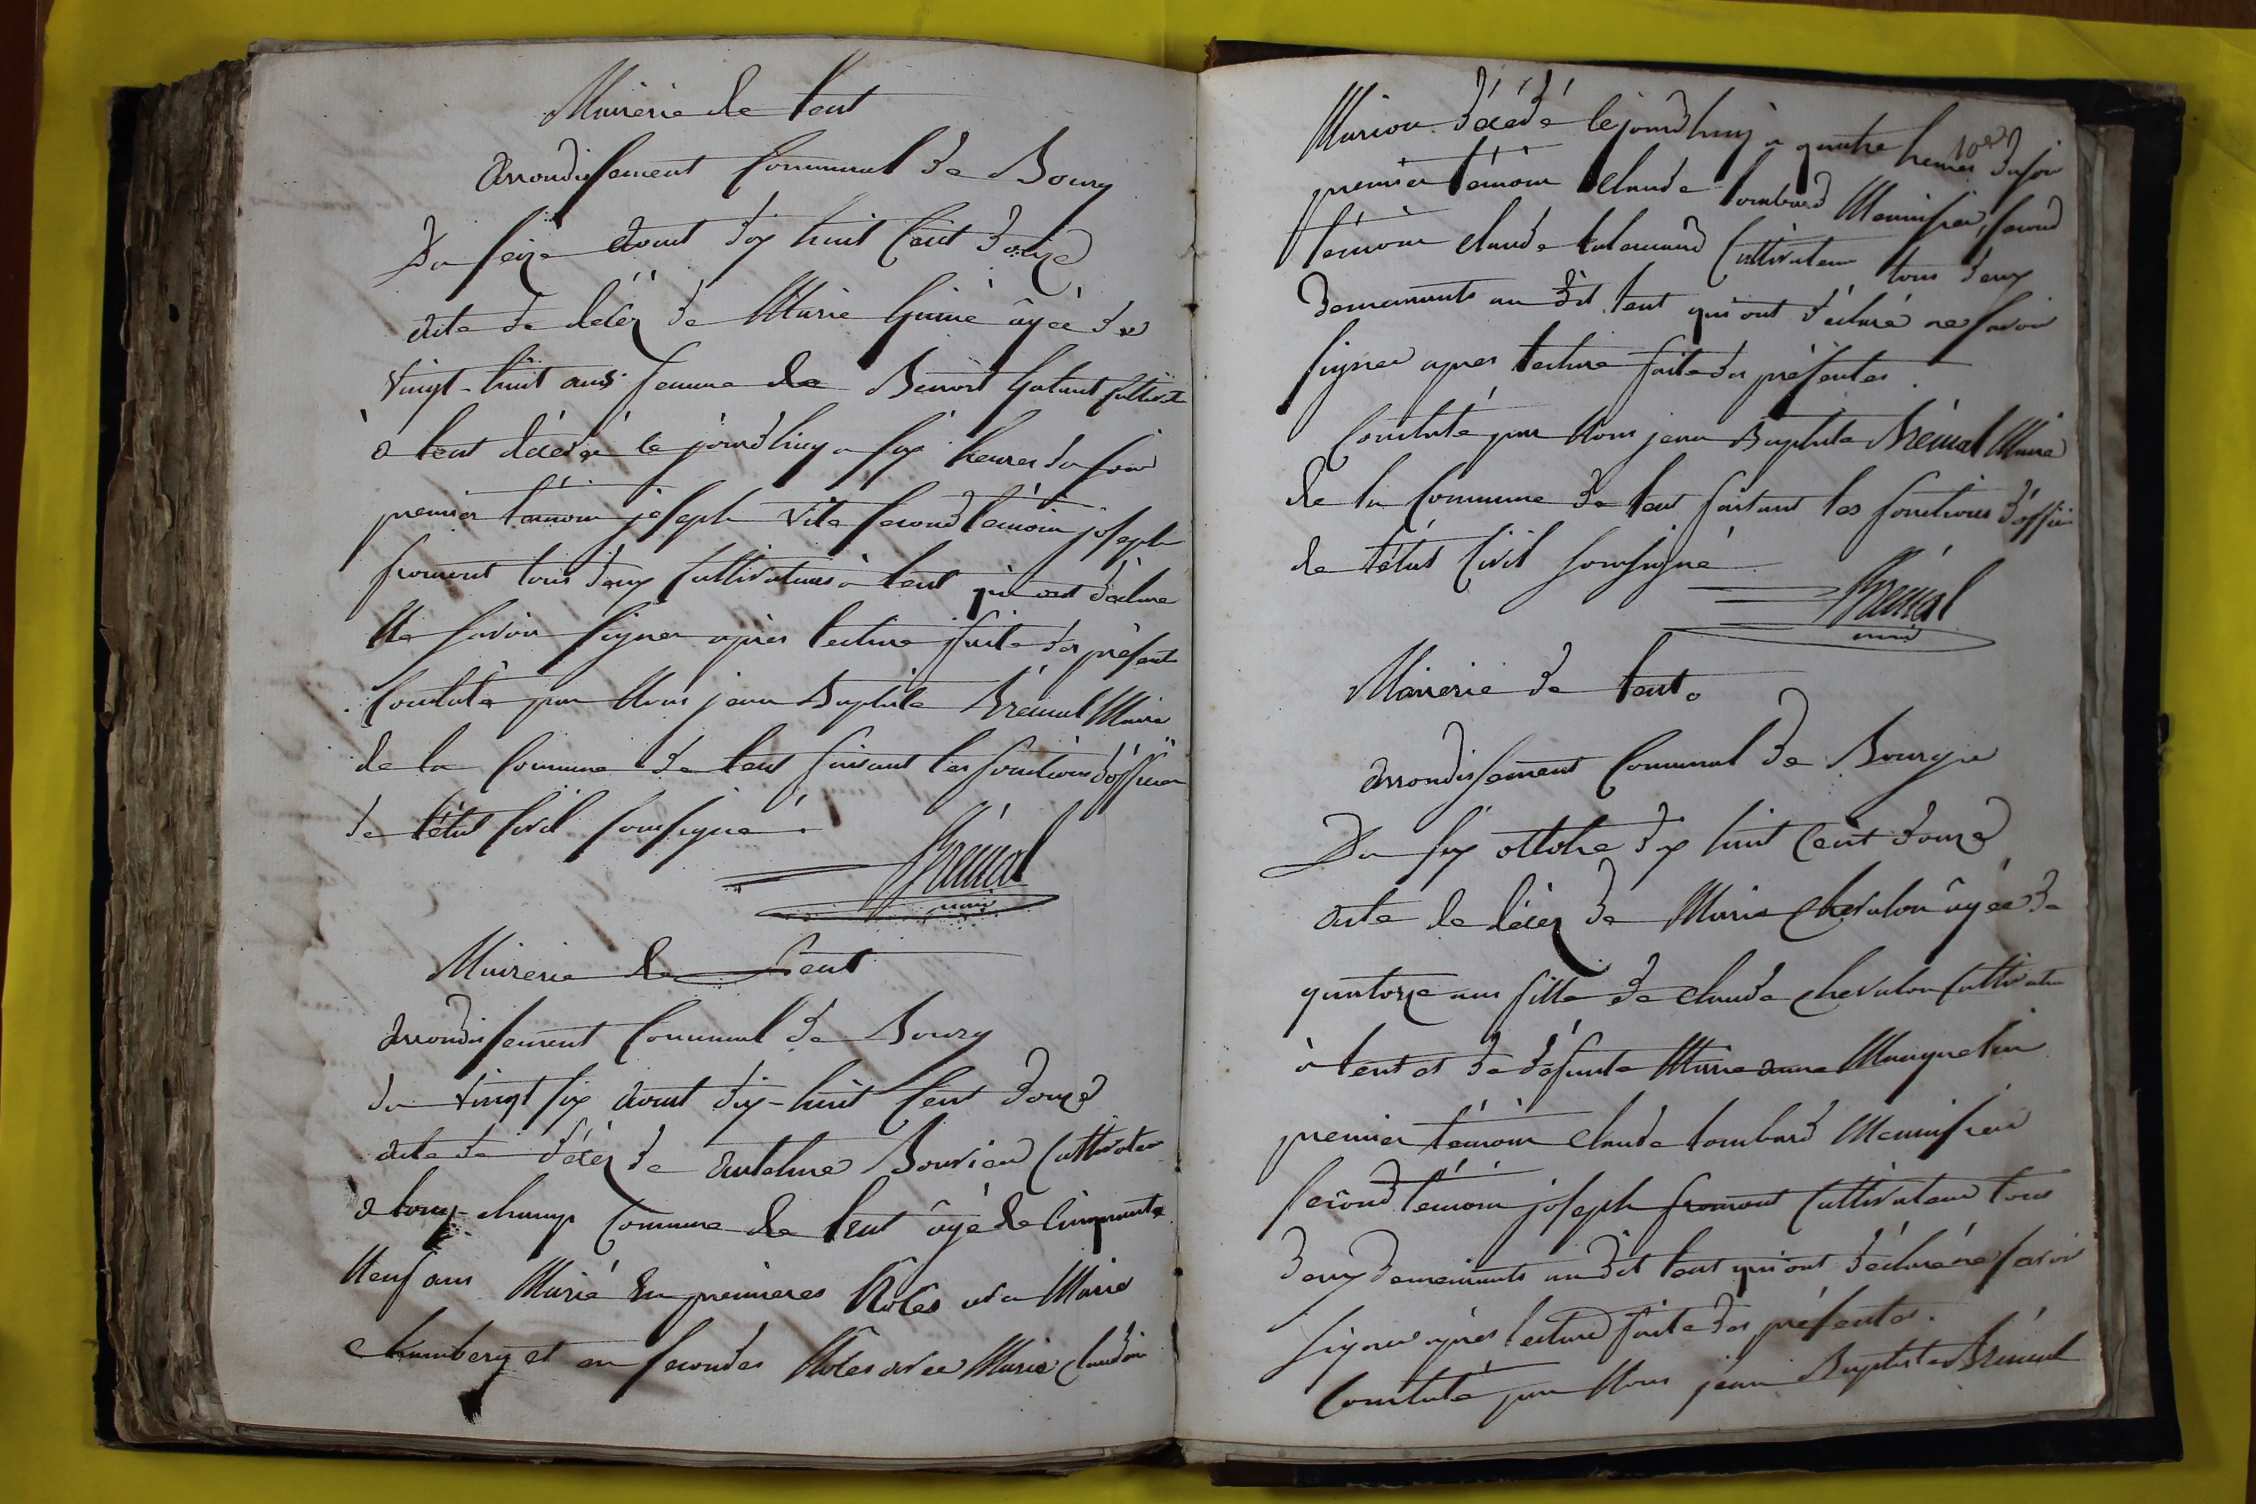 Mairerie de Lent
arrondissement Communal de Bourg
Du seize aout dix huit Cent douze
acte de décéz de Marie Guiné âgée de
vingt-huit ans femme de Benoit Galand Cultivat
à Lent décédé ce jourdhuy a six heures du soir
premier témoin joseph Vite second témoin joseph
froment tous deux Cultivateurs à Lent qui ont déclaré
Ne savoir signer après lecture faite des présent
Constaté par Nous jean Baptiste Brémal Maire
de la Commune de Lent faisant les fonctions d'officier
de l'état Civil soussigné.
Brémal
maire
Mairerie de Lent
arrondissement Communal de Bourg
du vingt six aout dix-huit Cent douze
acte de décéz de antelme Bouvier Cultivateur
a long-champ Commune de Lent âgé de Cinquante
Neuf ans Marié En premieres Nôces avec Marie
Chambery et en secondes Nôces avec Marie Claudine
Marion décédé cejourdhuy à quatre heures du soir
premier témoin Claude Lombard Menuisier, second
témoin Claude Cultivateur tous deux
demeurants au dit Lent qui ont déclaré ne savoir
signer apres lecture faite des présentes.
Constaté par Nous jean Baptiste Brémal Maire
de la Commune de Lent faisant les fonctions d'officier
de l'état Civil soussigné
Brémal
maire
Mairerie de Lent.
arrondissement Communal de Bourg
Du six octobre dix huit Cent douze
acte de décéz de Marie Chevalon âgée de
quatorze ans fille de Claude Chevalon Cultivateur
à Lent et de défunte Marie anne
premier témoin Claude Lombard Menuisier
second témoin joseph froment Cultivateur tous
deux demeurants au dit Lent qui ont déclaré ne savoir
signer après lecture faite des présentes.
Constaté par Nous jean Baptiste Brémal